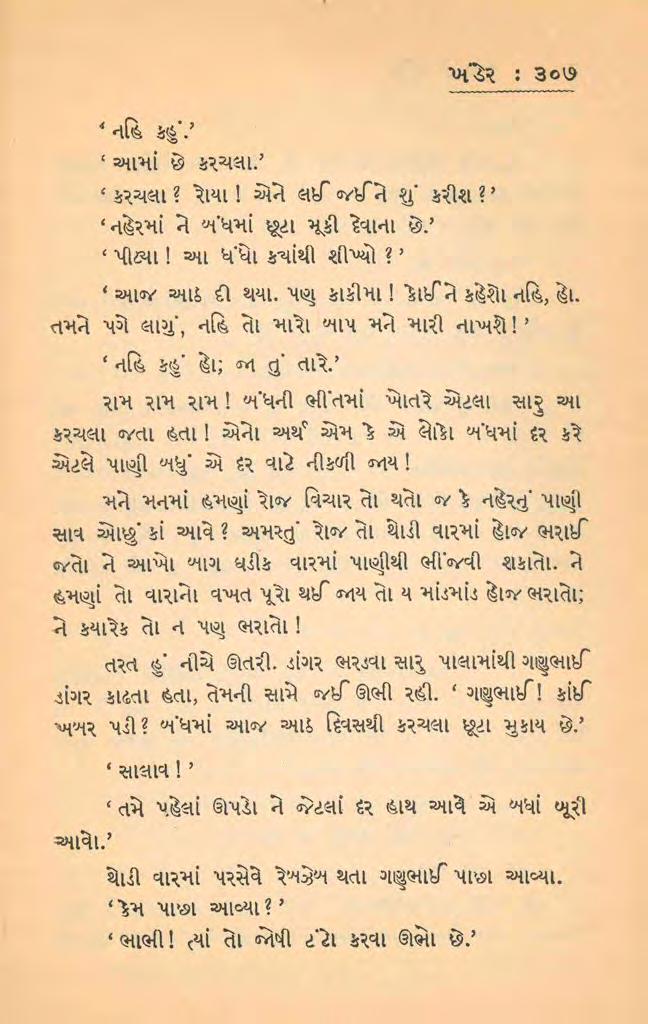 ખંડેર : ૩૦૭
‘ નહિ કહું.’
‘ આમાં છે કરચલા.’
‘ કરચલા ? રોયા ! એને લઈ જઈને શું કરીશ ?’
‘ નહેરમાં ને બંધમાં છૂટા મૂકી દેવાના છે.’
‘ પીટ્યા ! આ ધંધો કયાંથી શીખ્યો ?’
‘ આજ આઠ દી થયા. પણ કાકીમા ! કોઈને કહેશો નહિ, હો.
તમને પગે લાગું, નહિ તો મારો બાપ મને મારી નાખશે !’
‘ નહિ કહું હો; જા તું તારે.’
રામ રામ રામ ! બંધની ભીંતમાં ખોતરે એટલા સારુ આ
કરચલા જતા હતા ! એનો અર્થ એમ કે એ લોકો બંધમાં દર કરે
એટલે પાણી બધું એ દર વાટે નીકળી જાય !
મને મનમાં હમણાં રોજ વિચાર તો થતો જ કે નહેરનું પાણી
સાવ ઓછું કાં આવે ? અમસ્તું રોજ તો થોડી વારમાં હોજ ભરાઈ
જતો ને આખો બાગ ઘડીક વારમાં પાણીથી ભીંજવી શકાતો. ને
હમણાં તો વારાનો વખત પૂરો થઈ જાય તો ય માંડમાંડ હોજ ભરાતો;
ને કયારેક તો ન પણ ભરાતો !
તરત હું નીચે ઊતરી. ડાંગર ભરડવા સારુ પાલામાંથી ગણુભાઈ
ડાંગર કાઢતા હતા, તેમની સામે જઈ ઊભી રહી. ‘ ગણુભાઈ ! કાંઈ
ખબર પડી ? બંધમાં આજ આઠ દિવસથી કરચલા છૂટા મુકાય છે.’
‘ સાલાવ ! ’
‘ તમે પહેલાં ઊપડો ને જેટલાં દર હાથ આવે એ બધાં બૂરી
આવો.’
થોડી વારમાં પરસેવે રેબઝેબ થતા ગણુભાઈ પાછા આવ્યા.
‘ કેમ પાછા આવ્યા ?’
‘ ભાભી ! ત્યાં તો જોષી ટંટો કરવા ઊભો છે.’